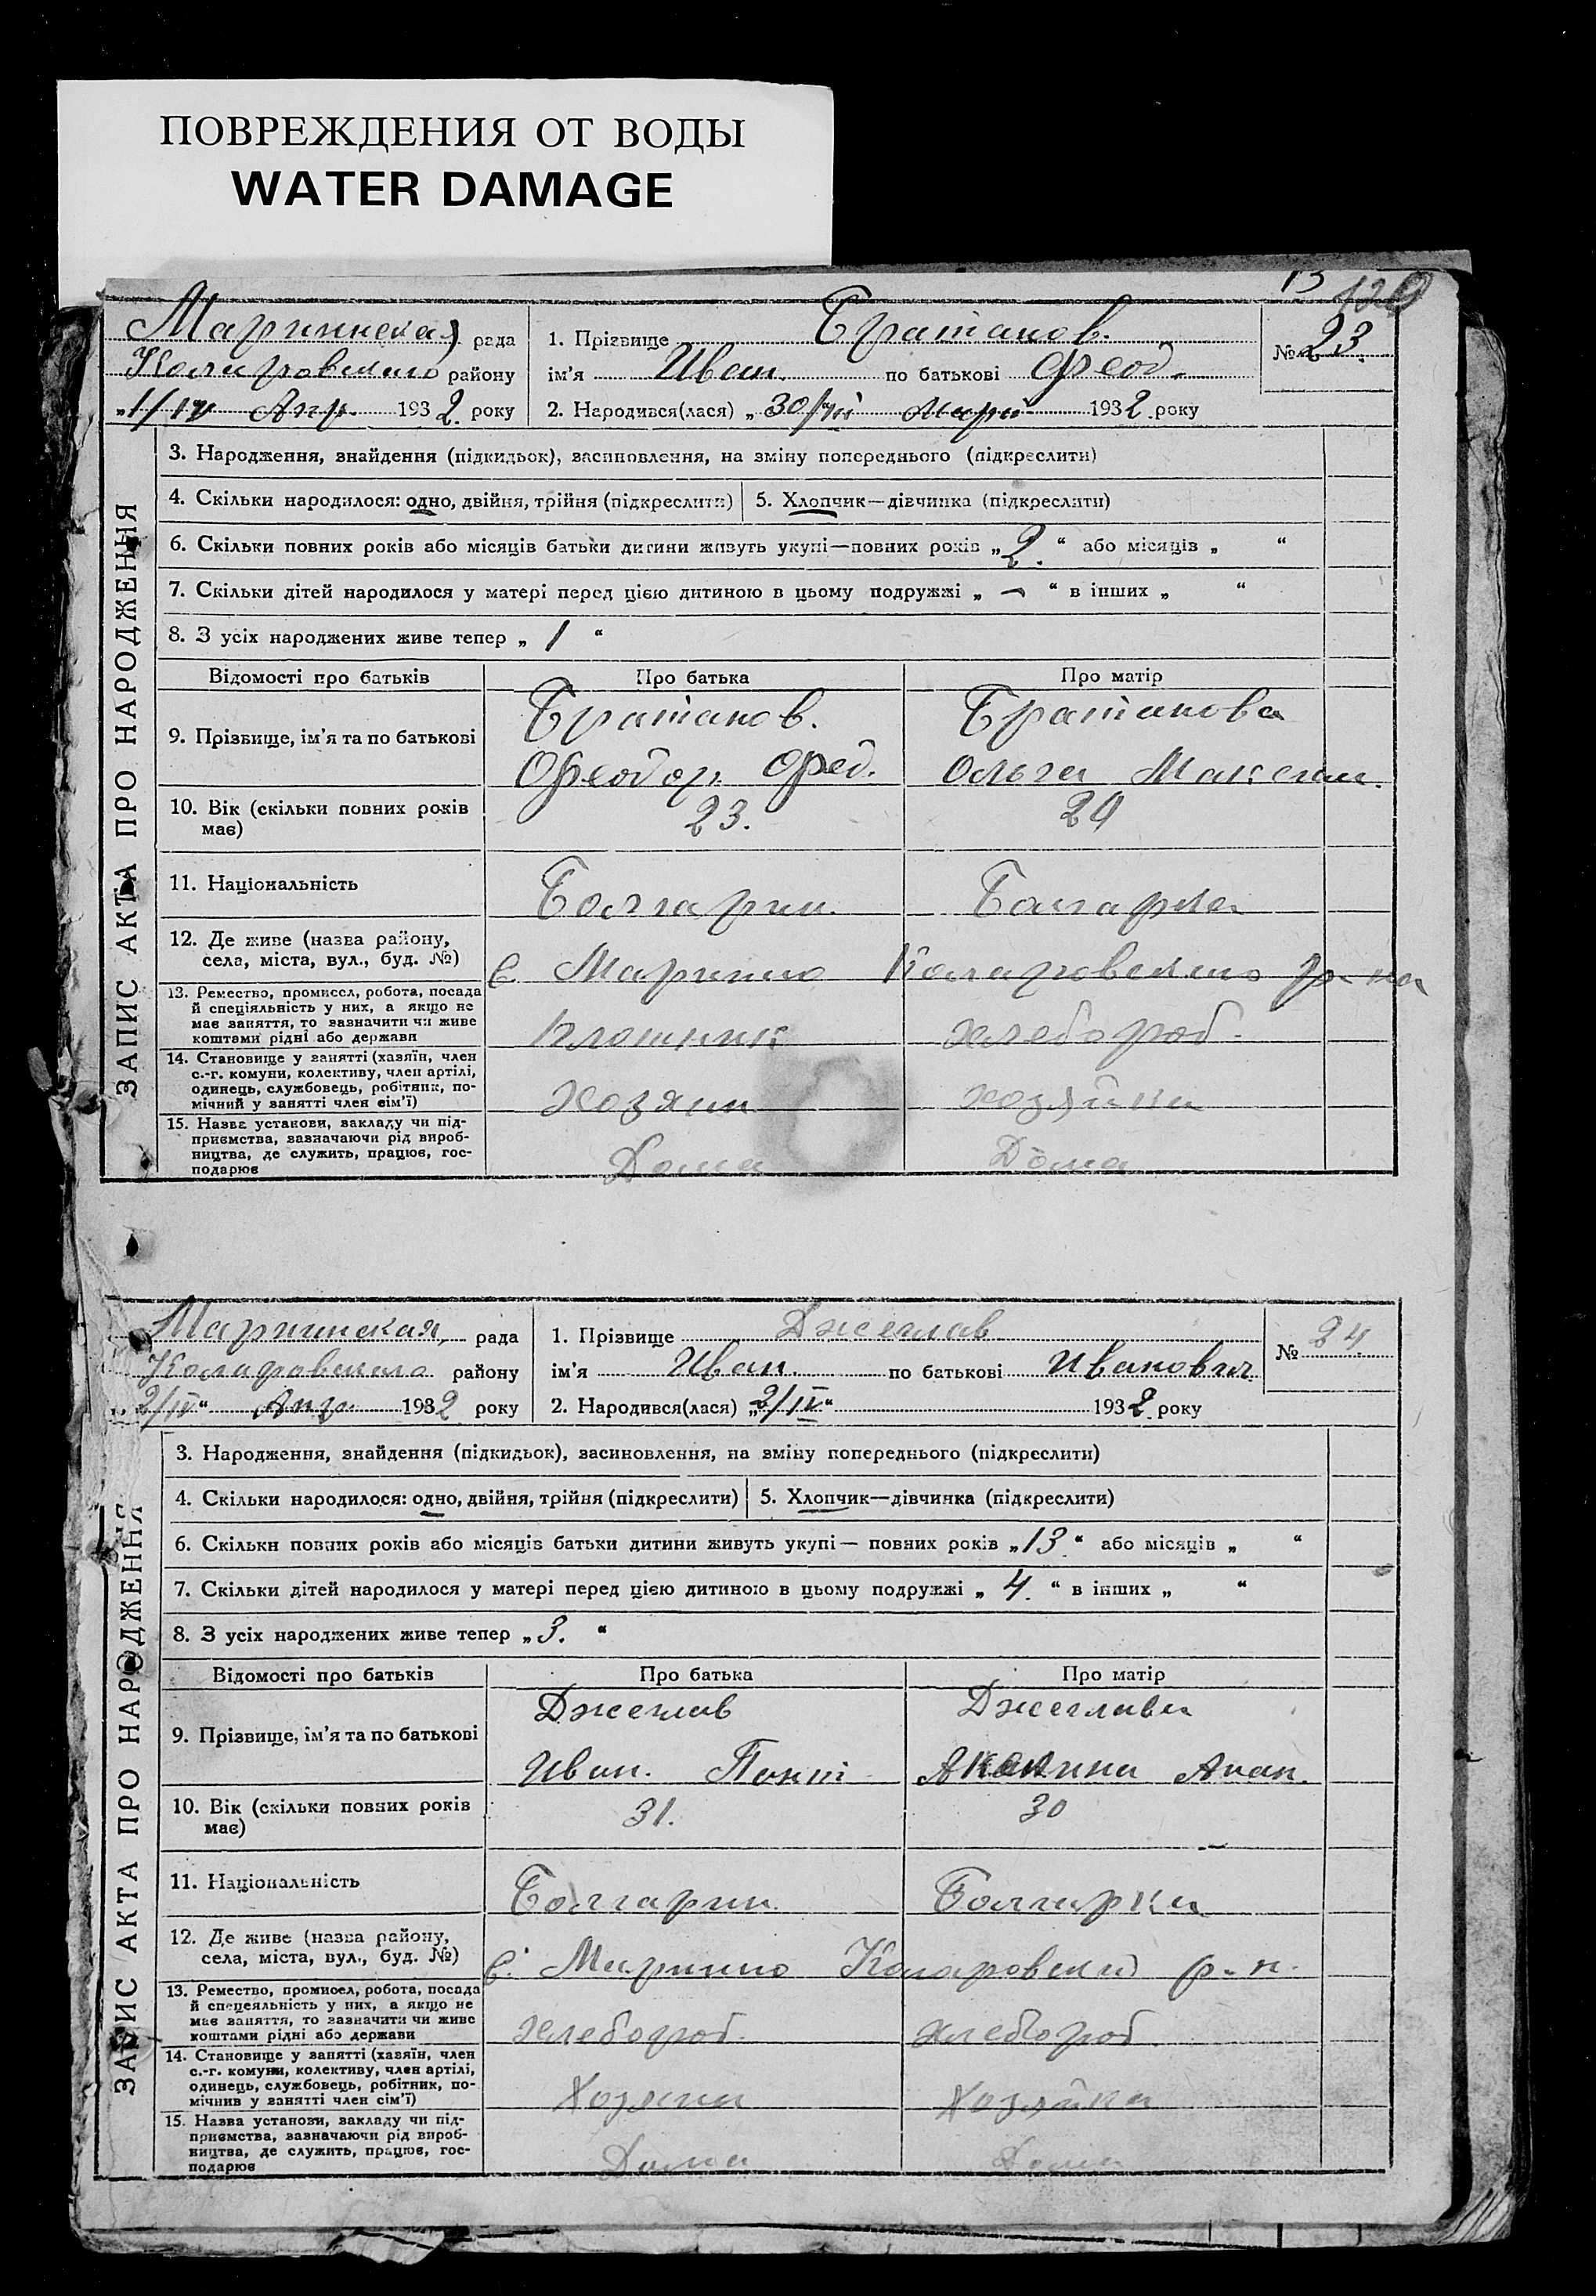 ПОВРЕЖДЕНИЯ ОТ ВОДЫ
WATER DAMAGE
13 120
Мариинская рада
Коларовского району
„1/IV Апр. 1932 року
1. Прізвище Братанов.
ім'я Иван. по батькові Феод.
2. Народився(лася) „30/III Март 1932 року
№ 23.
ЗАПИС АКТА ПРО НАРОДЖЕННЯ
3. Народження, знайдення (підкидьок), засиновлення, на зміну попереднього (підкреслити)
4. Скільки народилося: одно, двійня, трійня (підкреслити) 5. Хлопчик—дівчинка (підкреслити)
6. Скільки повних років або місяців батьки дитини живуть укупі—повних років „2.“ або місяців „ “
7. Скільки дітей народилося у матері перед цією дитиною в цьому подружжі „ — “ в інших „ “
8. З усіх народжених живе тепер „ 1 “
Відомості про батьків Про батька Про матір
9. Прізвище, ім'я та по батькові
Братанов. Братанова
Феодор Фед. Ольга Максим.
10. Вік (скільки повних років має)
23. 24
11. Національність Болгарин. Болгарка
12. Де живе (назва району, села, міста, вул., буд. №)
с. Марьино Коларовского р-на
13. Ремество, промисел, робота, посада
й спеціяльність у них, а якщо не
має заняття, то зазначити чи живе
коштами рідні або держави
хлебороб.
14. Становище у занятті (хазяїн, член
с.-г. комуни, колективу, член артілі,
одинець, службовець, робітник, по-
мічний у занятті член сім'ї)
Хозяин хозяйка
15. Назва установи, закладу чи під-
приємства, зазначаючи рід вироб-
ництва, де служить, працює, гос-
подарює
Дома Дома
Мариинская рада
Коларовского району
„2/IV“ Апр. 1932 року
1. Прізвище Джеглав
ім'я Иван. по батькові Иванович
2. Народився(лася) „2/IV“ 1932 року
№ 24.
ЗАПИС АКТА ПРО НАРОДЖЕННЯ
3. Народження, знайдення (підкидьок), засиновлення, на зміну попереднього (підкреслити)
4. Скільки народилося: одно, двійня, трійня (підкреслити) 5. Хлопчик—дівчинка (підкреслити)
6. Скільки повних років або місяців батьки дитини живуть укупі— повних років „13“ або місяців „ “
7. Скільки дітей народилося у матері перед цією дитиною в цьому подружжі „ 4. “ в інших „ “
8. З усіх народжених живе тепер „3. “
Відомості про батьків Про батька Про матір
9. Прізвище, ім'я та по батькові
Джеглав Джеглава
Иван. Акилина
10. Вік (скільки повних років має)
31. 30
11. Національність Болгарин Болгарка
12. Де живе (назва району, села, міста, вул., буд. №)
с. Марьино Коларовский р-н.
13. Ремество, промисел, робота, посада
й спецеяльність у них, а якщо не
має заняття, то зазначити чи живе
коштами рідні або держави
хлебороб. хлебороб
14. Становище у занятті (хазяїн, член
с.-г. комуни, колективу, член артілі,
одинець, службовець, робітник, по-
мічнив у занятті член сім'ї)
Хозяин Хозяйка
15. Назва установи, закладу чи під-
приємства, зазначаючи рід вироб-
ництва, де служить, працює, гос-
подарює
Дома Дома